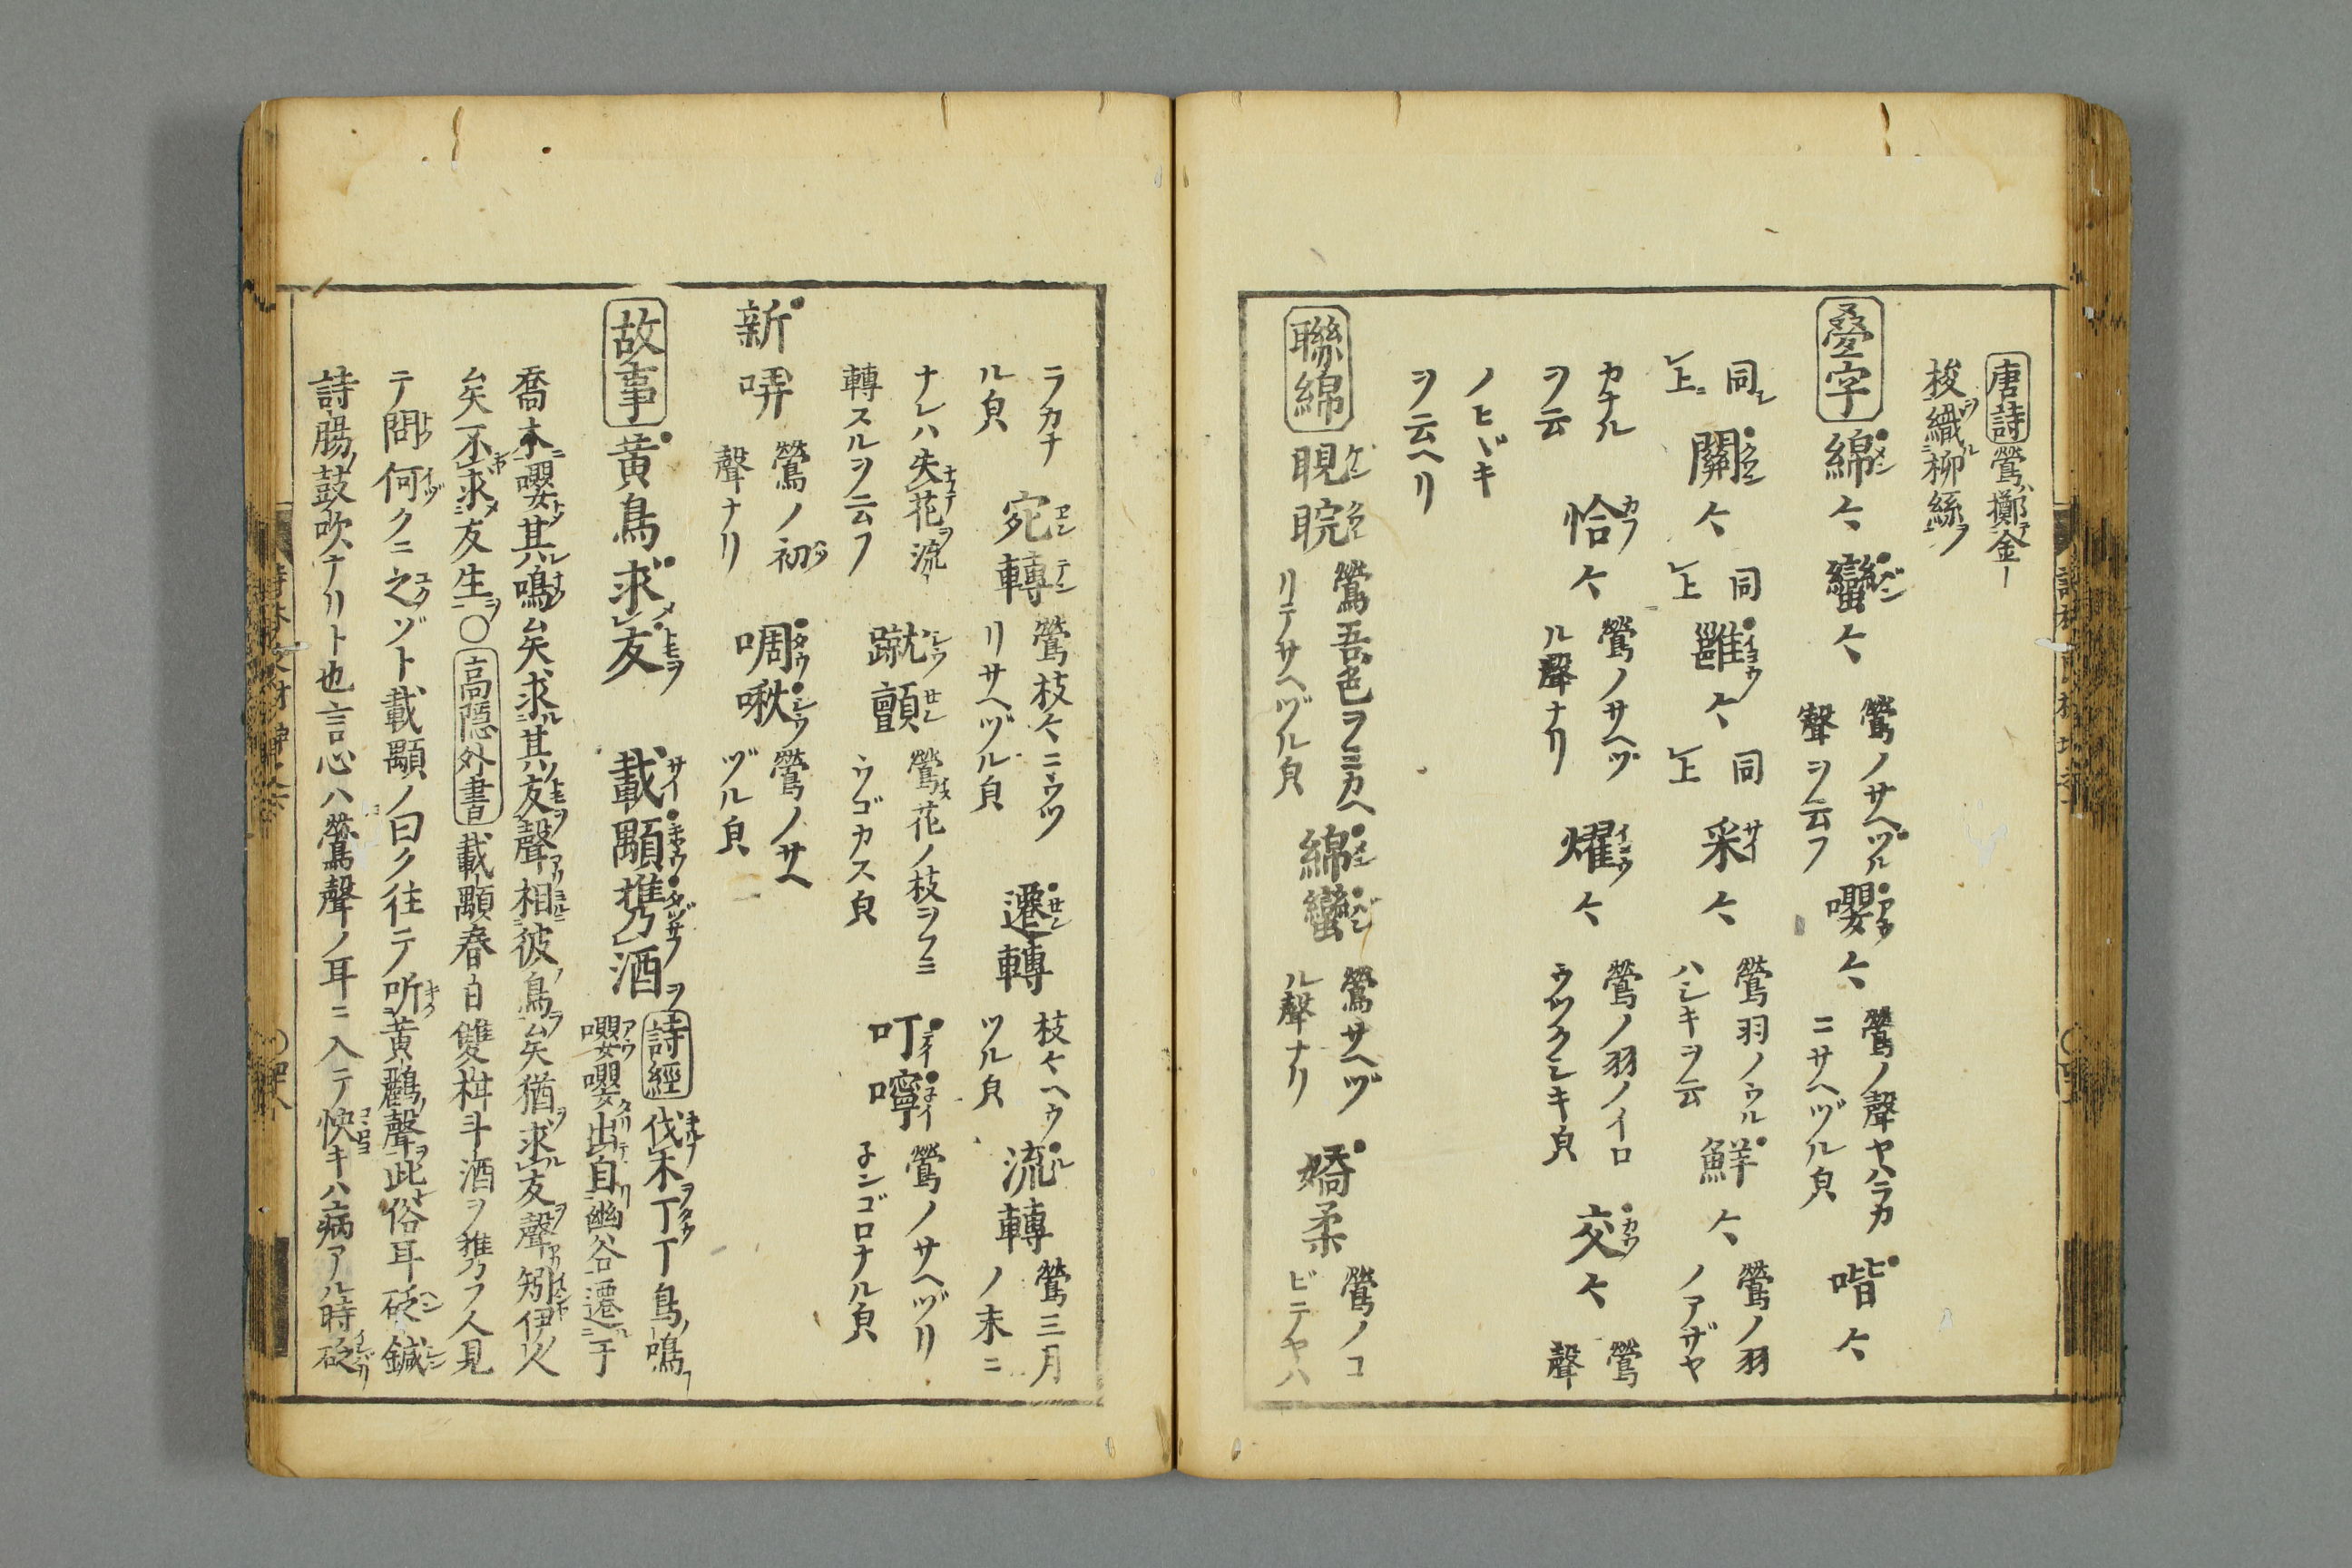 唐詩鶯擲金ー
梭織柳絲
疊字 綿〻 蠻〻 鶯ノサヘヅル聲ヲ云フ 嚶〻 鶯ノ聲ヤハラカニサヘヅル皃 喈〻
同上 關〻 同上 雝〻 同上 采〻 鶯羽ノウルハシキヲ云 鮮〻 鶯ノ羽ノアザヤ
カナルヲ云 恰〻 鶯ノサヘヅル聲ナリ 燿〻 鶯ノ羽ノイロウツクシキ皃 交〻 鶯聲
ノヒヾキヲ云ヘリ
聯綿 睍睆 鶯吾色ヲミカヘリテサヘヅル皃 綿蠻 鶯サヘヅル聲ナリ 嬌柔 鶯ノコビテヤハ
ラカナル皃 宛轉 鶯枝〻ニウツリサヘヅル皃 遷轉 枝〻ヘウツル皃 流轉 鶯三月ノ末ニ
ナレハ失花流轉スルヲ云フ 蹴顫 鶯花ノ枝ヲフミウゴカス皃 叮嚀 鶯ノサヘヅリ子ンゴロナル皃
新哢 鶯ノ初聲ナリ 啁啾 鶯ノサヘヅル皃
故事 黄鳥求友 載顒携酒 詩經 伐木丁丁鳥鳴
嚶嚶出自幽谷遷于
喬木嚶其鳴矣求其友聲相彼鳥矣猶求友聲矧伊人
矣不求友生〇高隱外書 載顒春日雙柑斗酒ヲ携フ人見
テ問何クニ之ゾト載顒ノ曰ク往テ听黄鸝聲此俗耳砭鍼
詩腸鼓吹ナリト也言心ハ鶯聲ノ耳ニ入テ快キハ病アル時砭